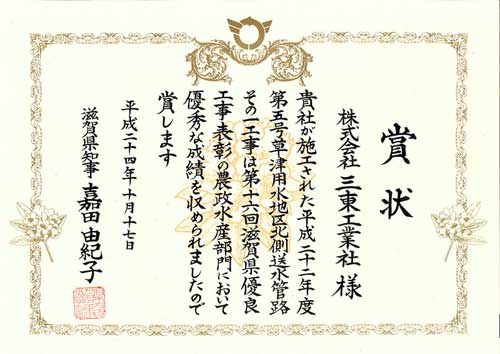 賞状
株式会社 三東工業社 様
貴社が施工された平成二十二年度
第五号草津用水地区北側送水管路
その一工事は第十六回滋賀県優良
工事表彰の農政水産部門において
優秀な成績を収められましたので
賞します
平成二十四年十月十七日
滋賀県知事 嘉田由紀子